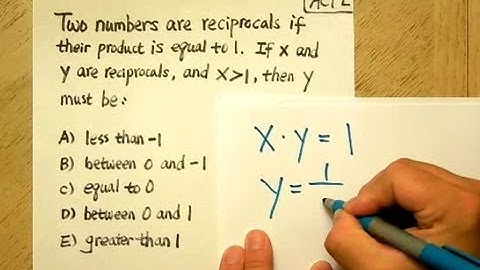 ACT 2
Two numbers are reciprocals if
their product is equal to 1. If x and
y are reciprocals, and x>1, then y
must be:
A) less than -1
B) between 0 and -1
C) equal to 0
D) between 0 and 1
E) greater than 1
x · y = 1
y = 1/